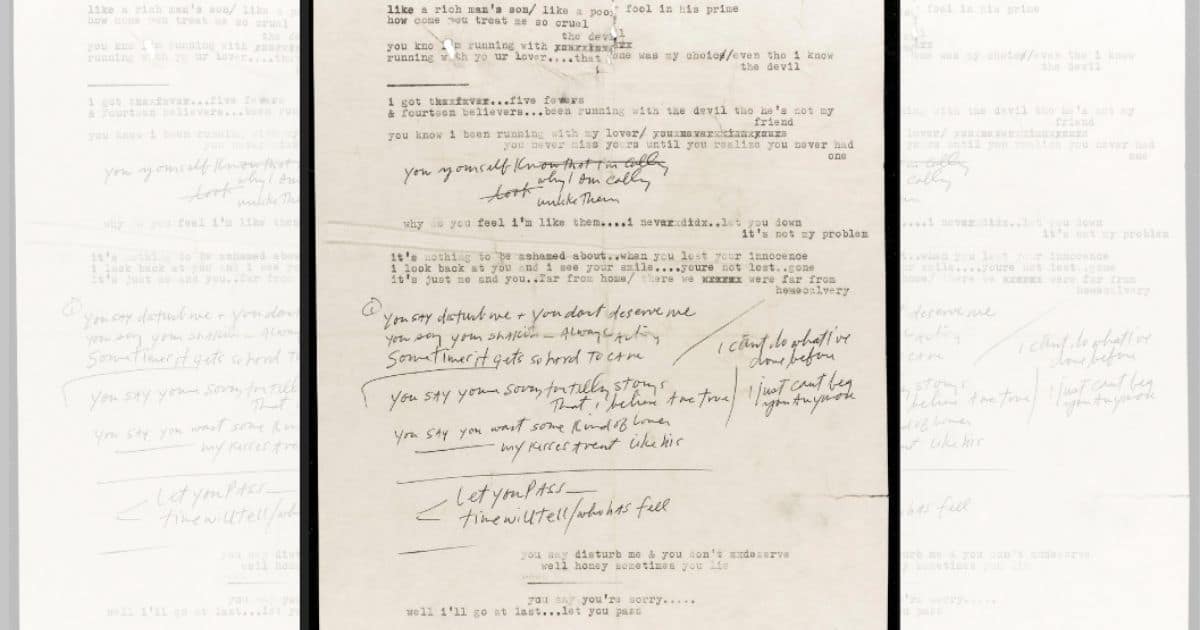 like a rich man's son/ like a poor fool in his prime
how come you treat me so cruel
the devil
you kno i'm running with
running with yo ur lover....that one was my choice/even tho i know
the devil
i got five fevers
& fourteen believers...been running with the devil tho he's not my
friend
you know i been running with my lover/
you never miss yours until you realize you never had
one
you yourself know that i'm calling
look why I am calling
unlike Them
why do you feel i'm like them....i never didx..let you down
it's not my problem
it's nothing to be ashamed about..when you lost your innocence
i look back at you and i see your smile....youre not lost..gone
it's just me and you..far from home/ there we were far from
home calvery
You say disturb me + you dont deserve me
You say your shakin - Always Acting
Sometimes it gets so hord To care
I can't do what i've
done before
You say your sorry for telling storys
That i believe are true
I just cant beg
you Anymore
You say you want some kind of lover
my kisses arent like his
Let you Pass
time will tell/who has fell
you say disturb me & you don't deserve
well honey sometimes you lie
you say you're sorry.....
well i'll go at last...let you pass